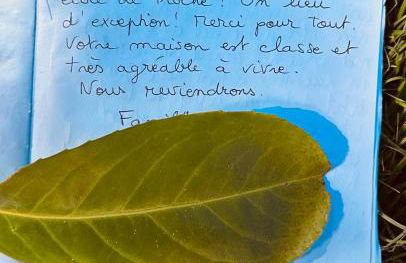 de Un lieu
d'exception! Merci pour tout.
Votre maison est classe et
très agréable à vivre.
Nous reviendrons.